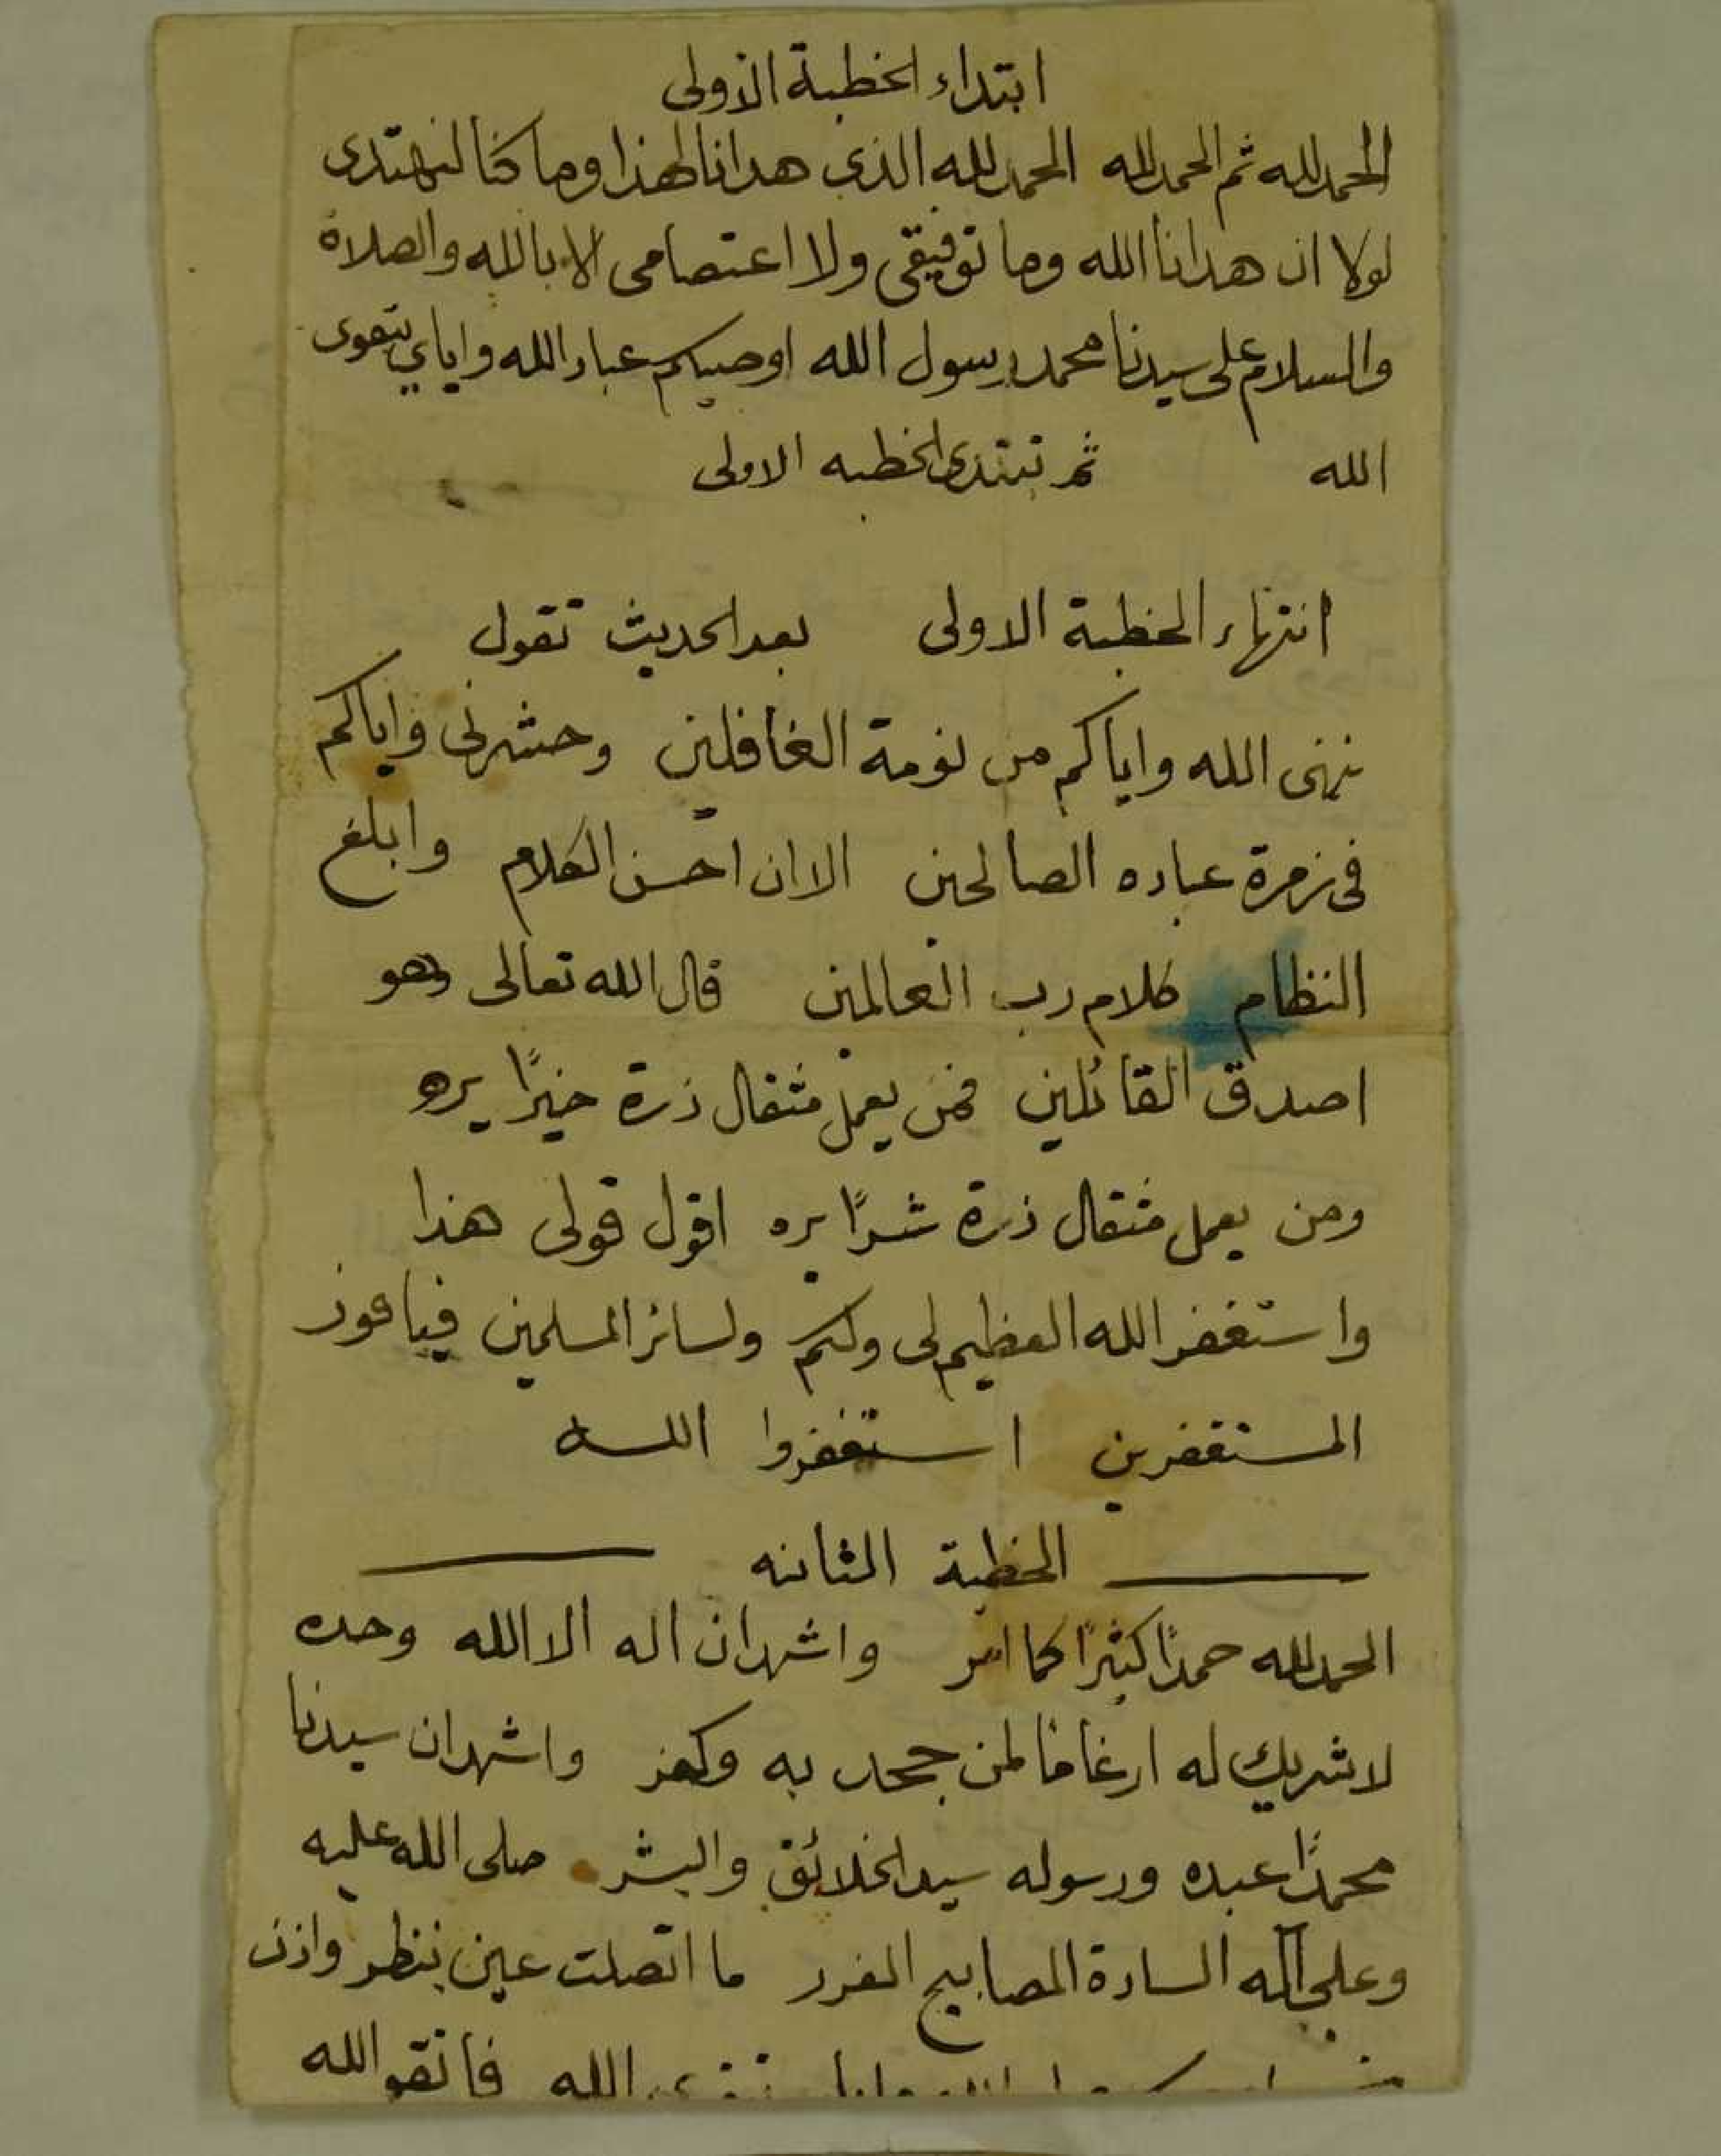 ابتداء الخطبة الاولى
الحمد لله ثم الحمد لله الحمد لله الذي هدانا لهذا وما كنا لنهتدى
لولا ان هدانا الله وما توفيقى ولا اعتصامى الا بالله والصلاة
والسلام على سيدنا محمد رسول الله اوصيكم عباد الله واياي بتقوى
الله ثم تبتدى الخطبه الاولى
انتهاء الخطبة الاولى بعد الحديث تقول
الله واياكم من نومة الغافلين وحشرنى واياكم
فى زمرة عباده الصالحين الا ان احسن الكلام وابلغ
النظام كلام رب العالمين قال الله تعالى وهو
اصدق القائلين فمن يعمل مثقال ذرة خيرًا يره
ومن يعمل مثقال ذرة شرًا يره اقول قولى هذا
واستغفر الله العظيم لى ولكم ولسائر المسلمين فيا فوز
المستغفرين استغفروا الله
الخطبة الثانيه
الحمد لله حمدًا كثيرًا كما امر واشهد ان اله الا الله وحده
لا شريك له ارغامًا لمن جحد به وكفر واشهد ان سيدنا
محمدًا عبده ورسوله سيد الخلائق والبشر صلى الله عليه
وعلى آله السادة المصابيح الغرر ما اتصلت عين بنظر واذن
الله فاتقو الله